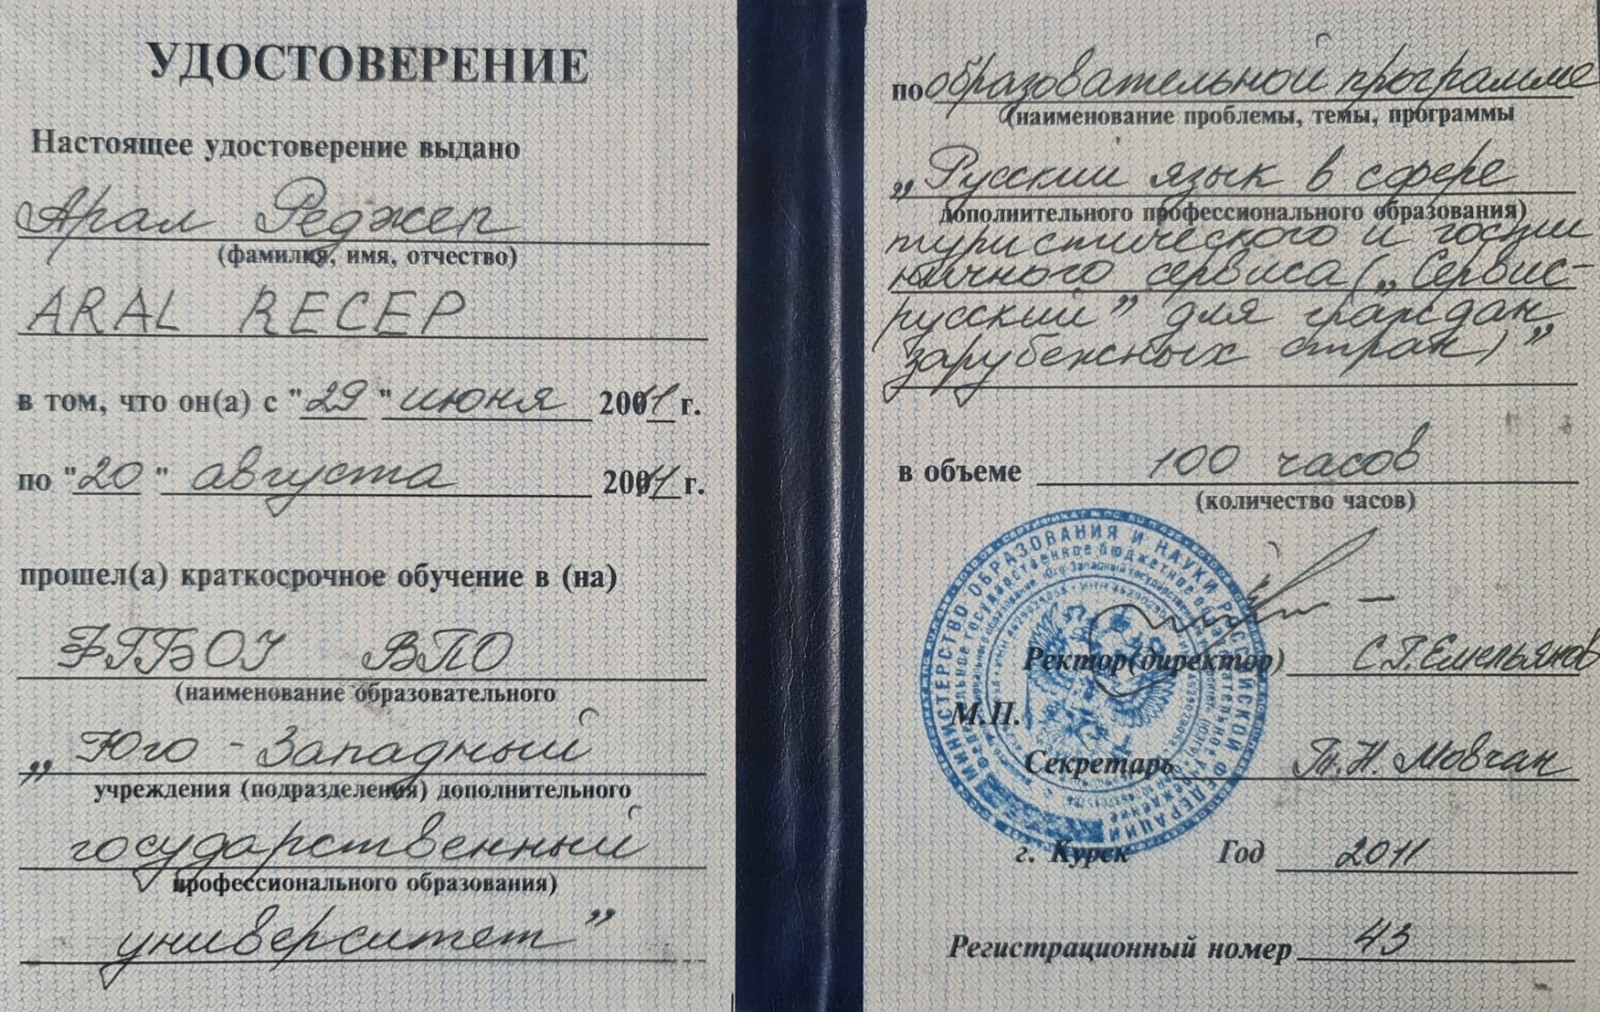 УДОСТОВЕРЕНИЕ
Настоящее удостоверение выдано
Арал Реджеп
(фамилия, имя, отчество)
ARAL RECEP
в том, что он(а) с "29" июня 2011 г.
по "20" августа 2011 г.
прошел(а) краткосрочное обучение в (на)
ФГБОУ ВПО
(наименование образовательного
„Юго-Западный
учреждения (подразделения) дополнительного
государственный
профессионального образования)
университет”
по образовательной программе
(наименование проблемы, темы, программы
„Русский язык в сфере
дополнительного профессионального образования)
туристического и гостин
ичного сервиса („Сервис-
русский” для граждан
зарубежных стран)”
в объеме 100 часов
(количество часов)
МИНИСТЕРСТВО ОБРАЗОВАНИЯ И НАУКИ РОССИЙСКОЙ ФЕДЕРАЦИИ
Ректор(директор) С.Г.Емельянов
М.П.
Секретарь Т.Н. Мовчан
г. Курск Год 2011
Регистрационный номер 43